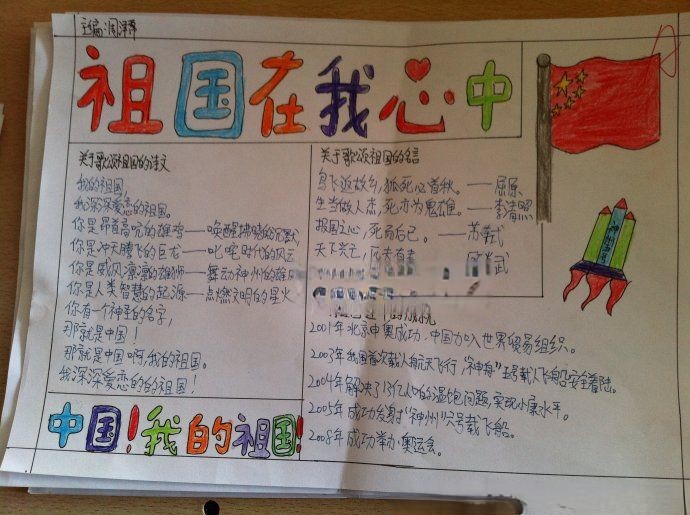 主编:周泽霏
祖国在我心中
关于歌颂祖国的诗文
我的祖国,
我深深爱恋的祖国。
你是昂首高吭的雄鸡——唤醒拂晓的沉默,
你是冲天腾飞的巨龙——叱咤时代的风云,
你是威风凛凛的雄狮——舞动神州的雄风,
你是人类智慧的起源——点燃文明的星火。
你有一个神圣的名字,
那就是中国!
那就是中国啊,我的祖国。
我深深爱恋的的祖国!
中国!我的祖国!
关于歌颂祖国的名言
鸟飞返故乡,狐死必首秋。——屈原
生当做人杰,死亦为鬼雄。——李清照
报国之心,死而后已。——苏轼
天下兴亡,匹夫有责
2001年北京申奥成功,中国加入世界贸易组织。
2003年我国首次载人航天飞行,"神舟"五号载人飞船安全着陆。
2004年解决了13亿人口的温饱问题,实现小康水平。
2005年成功发射"神州"六号载飞船。
2008年成功举办奥运会。
神州